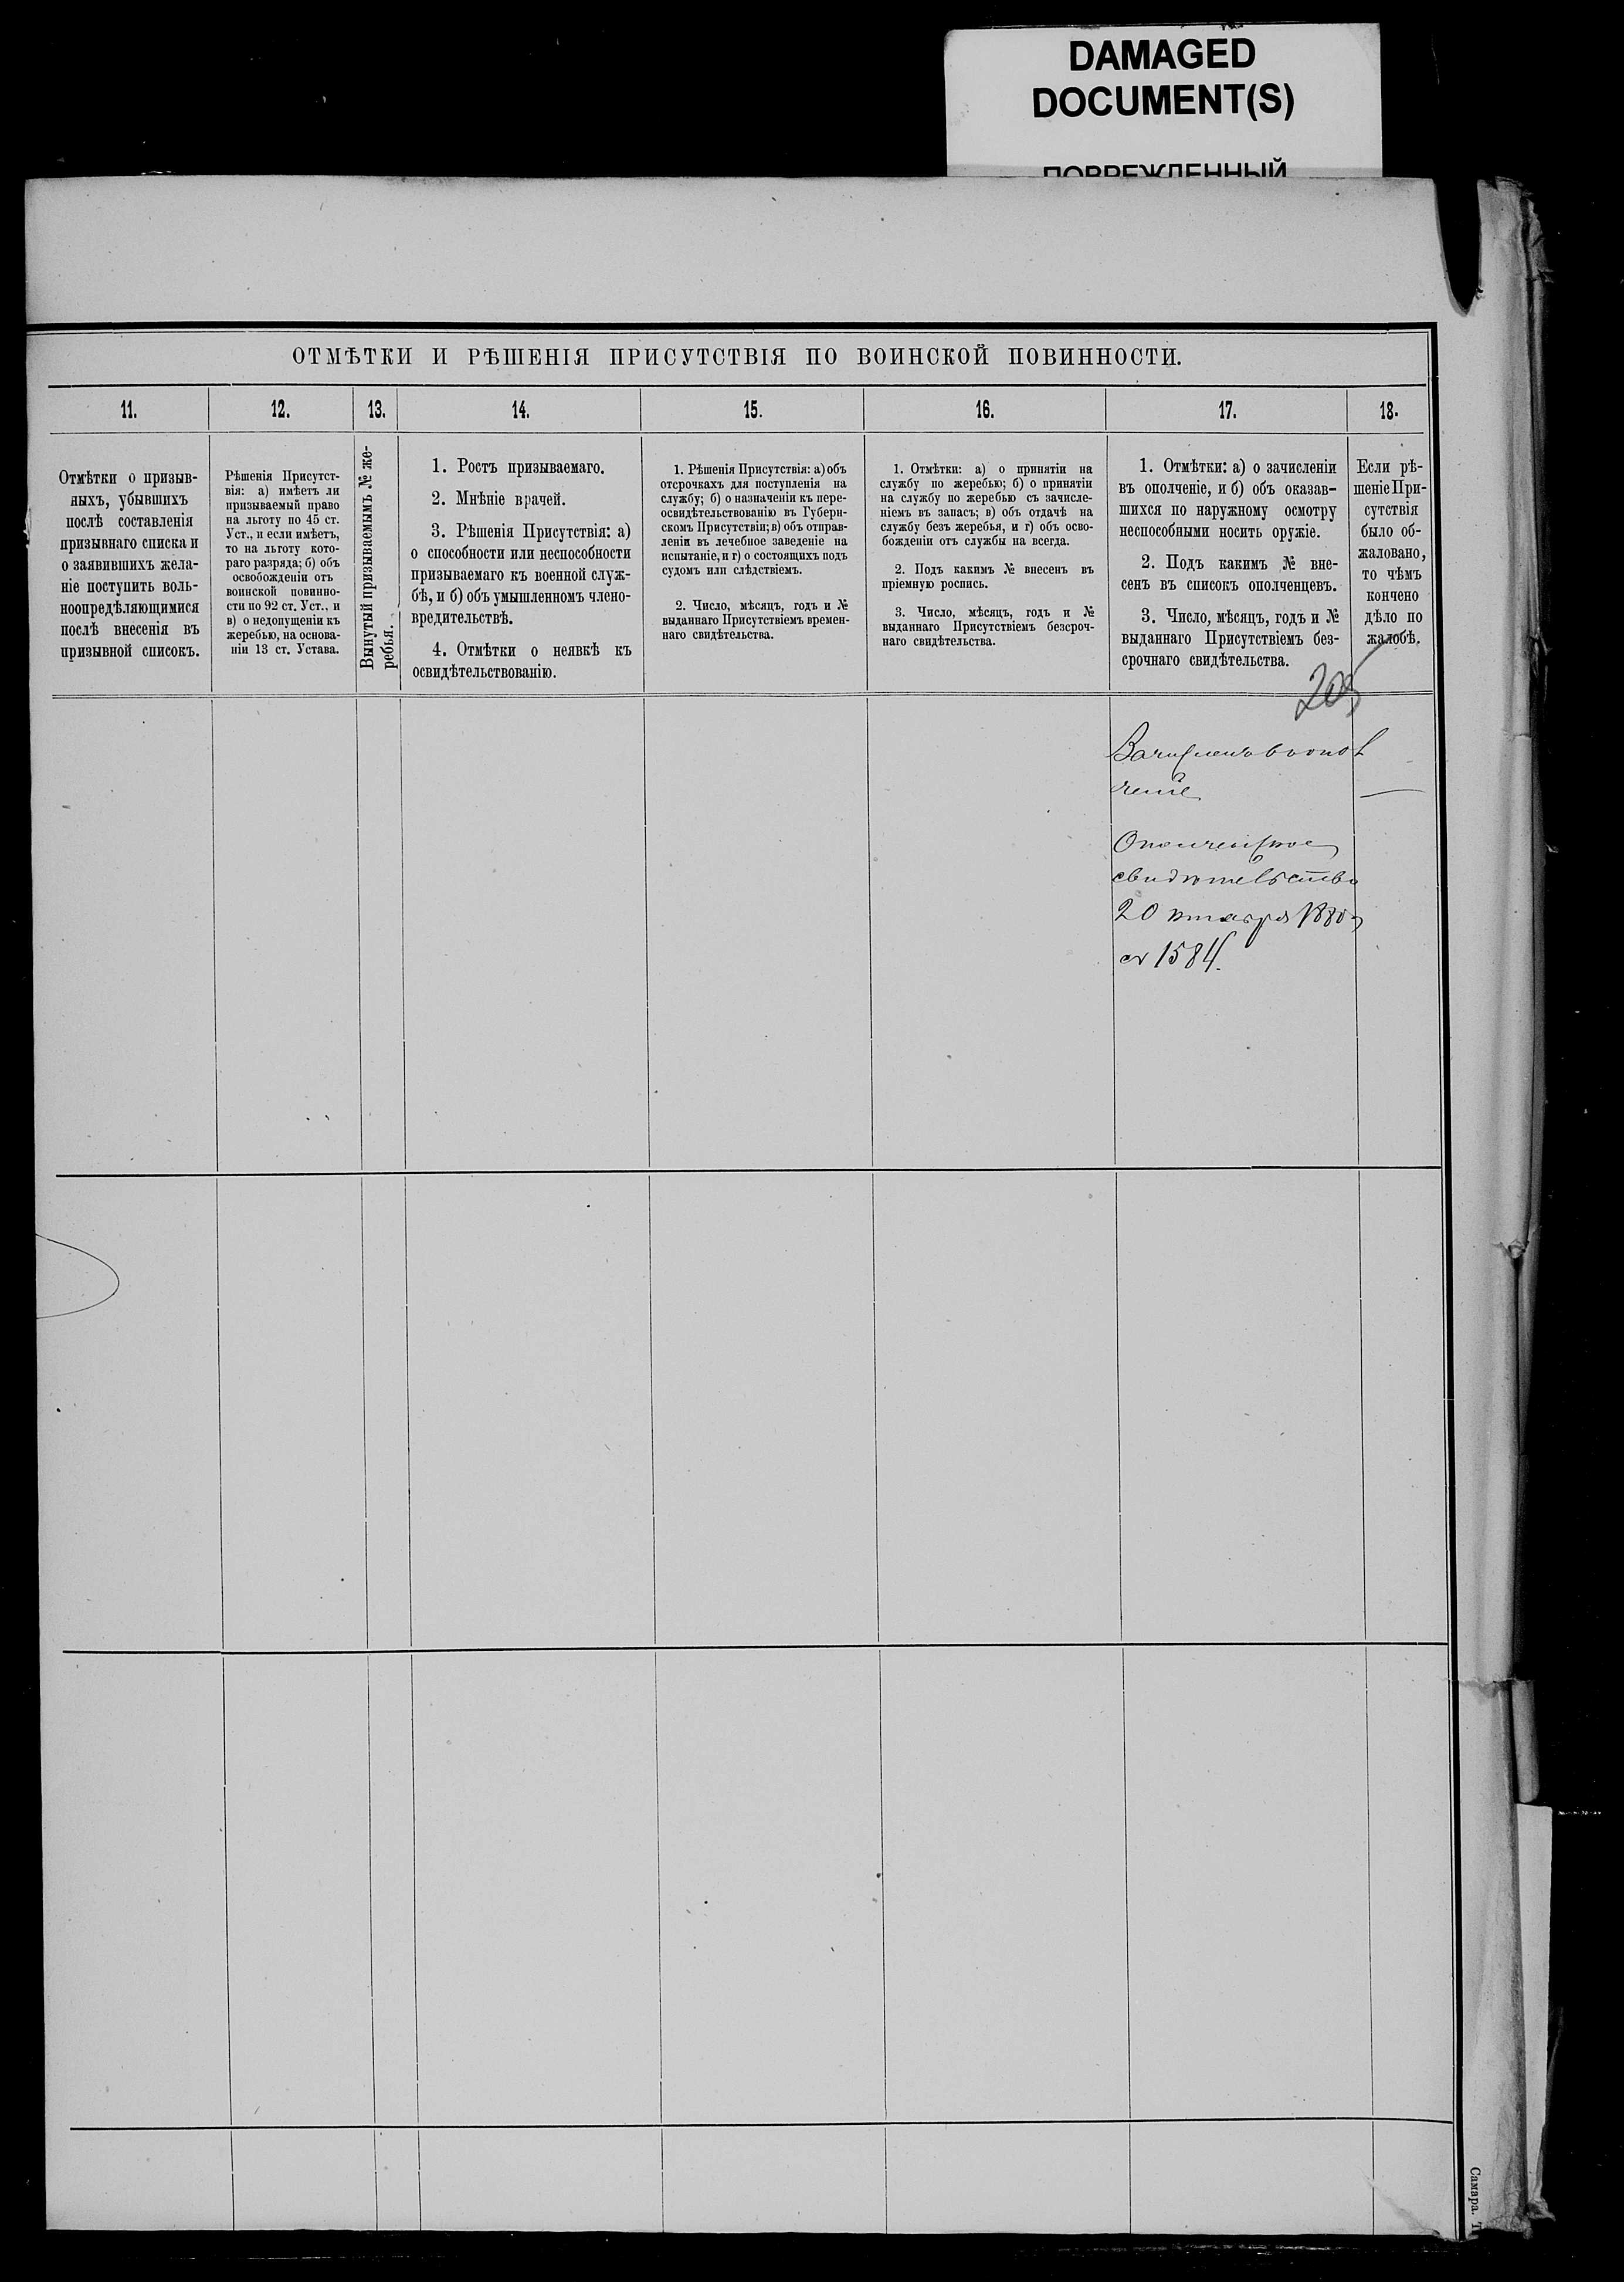 DAMAGED
DOCUMENT(S)
ПОВРЕЖДЕННЫЙ
ОТМѢТКИ И РѢШЕНІЯ ПРИСУТСТВІЯ ПО ВОИНСКОЙ ПОВИННОСТИ.
11.
12.
13.
14.
15.
16.
17.
18.
Отмѣтки о призыв-
ныхъ, убывшихъ
послѣ составленія
призывнаго списка и
о заявившихъ жела-
ніе поступить воль-
ноопредѣляющимися
послѣ внесенія въ
призывной списокъ.
Рѣшенія Присутст-
вія: а) имѣетъ ли
призываемый право
на льготу по 45 ст.
Уст., и если имѣетъ,
то на льготу кото-
раго разряда; б) объ
освобожденіи отъ
воинской повинно-
сти по 92 ст. Уст., и
в) о недопущеніи къ
жеребью, на основа-
ніи 13 ст. Устава.
Вынутый призываемымъ № же-
ребья.
1. Ростъ призываемаго.
2. Мнѣніе врачей.
3. Рѣшенія Присутствія: а)
о способности или неспособности
призываемаго къ военной служ-
бѣ, и б) объ умышленномъ члено-
вредительствѣ.
4. Отмѣтки о неявкѣ къ
освидѣтельствованію.
1. Рѣшенія Присутствія: а) объ
отсрочкахъ для поступленія на
службу; б) о назначеніи къ пере-
освидѣтельствованію въ Губерн-
скомъ Присутствіи; в) объ отправ-
леніи въ лечебное заведеніе на
испытаніе, и г) о состоящихъ подъ
судомъ или слѣдствіемъ.
2. Число, мѣсяцъ, годъ и №
выданнаго Присутствіемъ времен-
наго свидѣтельства.
1. Отмѣтки: а) о принятіи на
службу по жеребью; б) о принятіи
на службу по жеребью съ зачисле-
ніемъ въ запасъ; в) объ отдачѣ на
службу безъ жеребья, и г) объ осво-
божденіи отъ службы на всегда.
2. Подъ какимъ № внесенъ въ
пріемную роспись.
3. Число, мѣсяцъ, годъ и №
выданнаго Присутствіемъ безсроч-
наго свидѣтельства.
1. Отмѣтки: а) о зачисленіи
въ ополченіе, и б) объ оказав-
шихся по наружному осмотру
неспособными носить оружіе.
2. Подъ какимъ № вне-
сенъ въ списокъ ополченцевъ.
3. Число, мѣсяцъ, годъ и №
выданнаго Присутствіемъ без-
срочнаго свидѣтельства.
Если рѣ-
шеніе При-
сутствія
было об-
жаловано,
то чѣмъ
кончено
дѣло по
жалобѣ.
205
Зачисленъ въ опол
ченіе
Ополченское
свидѣтельство
20 октября 1880 г
№ 1584.
Самара. Т